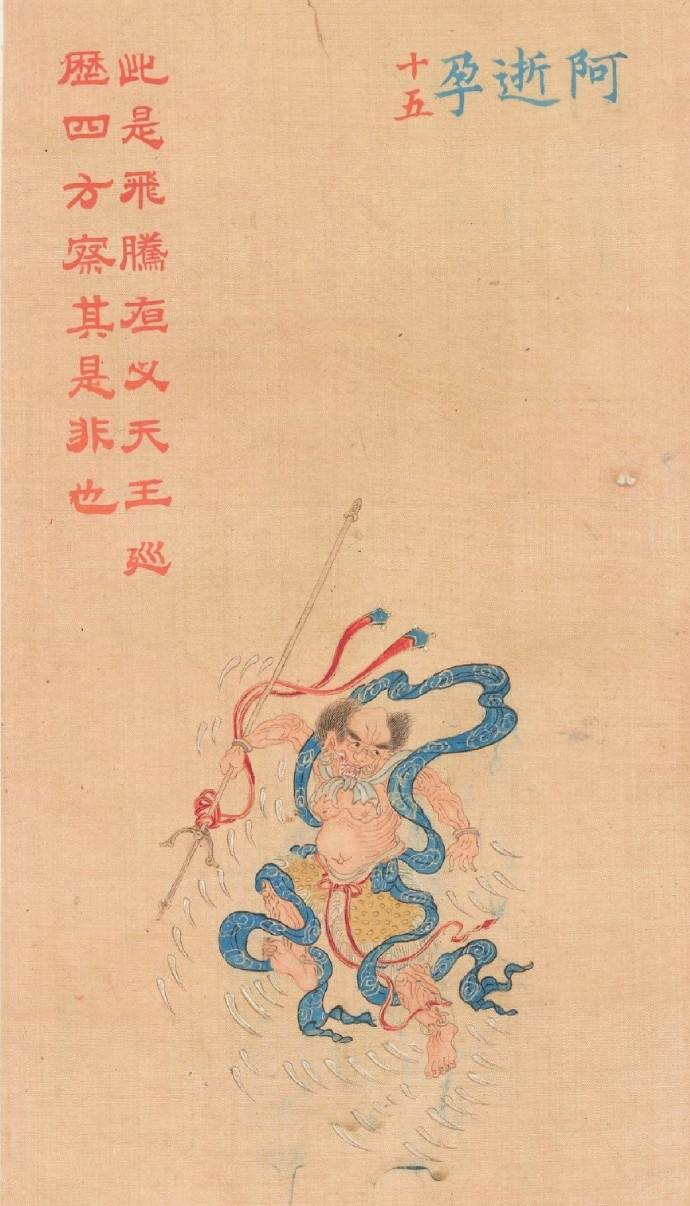 阿逝孕
十五
此是飛騰夜叉天王廵
歴四方察其是非也